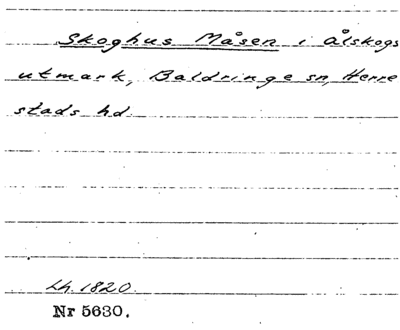 Skoghus Måsen i Ålskogs
utmark, Baldringe sn, Herre
stads hd.
Lh. 1820.
Nr 5630.